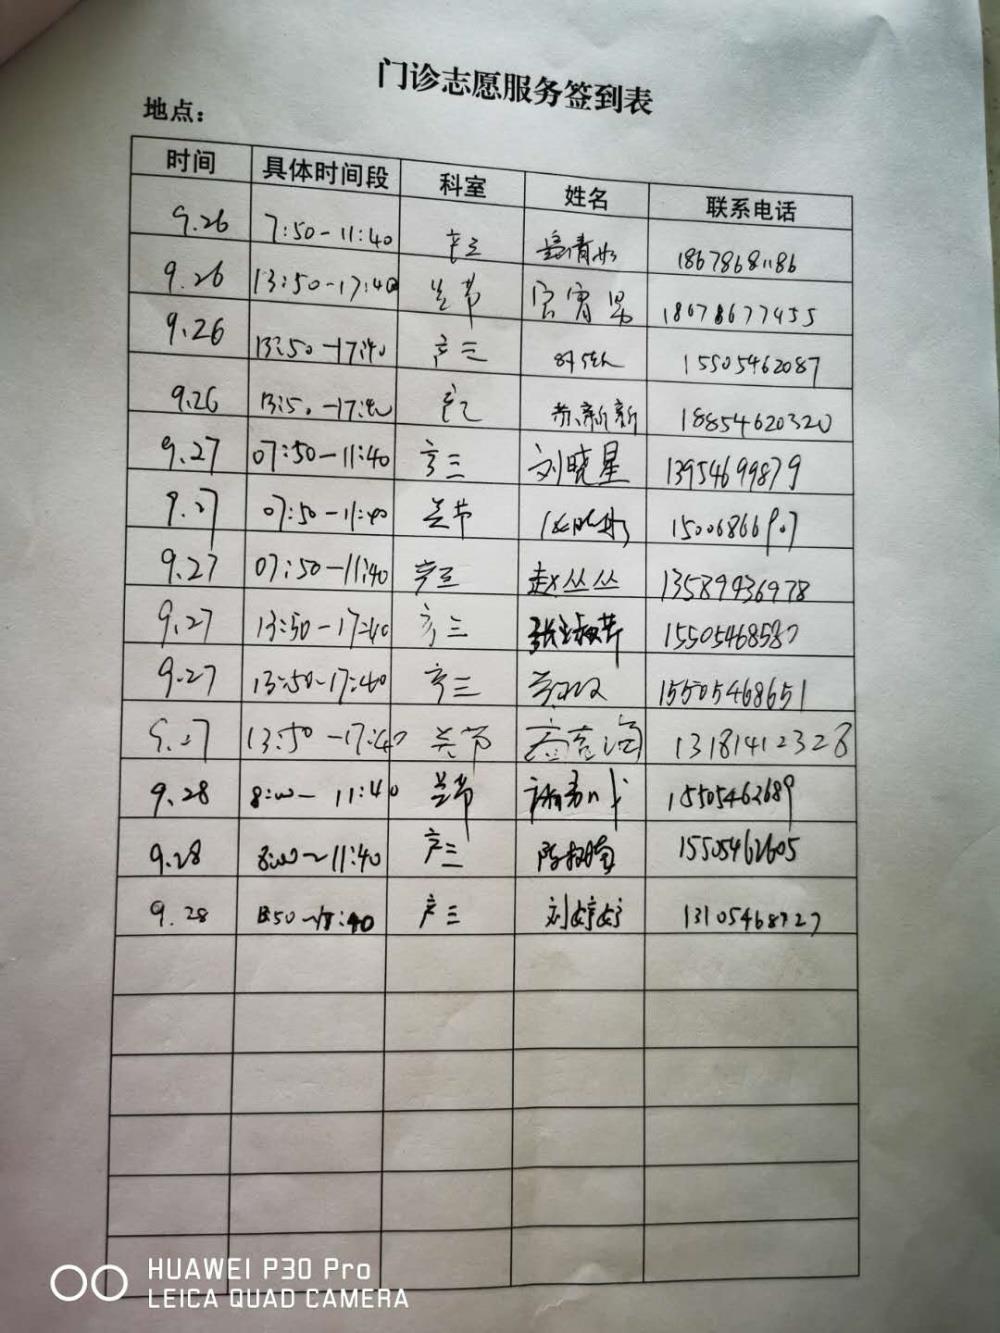 门诊志愿服务签到表
地点：
时间 具体时间段 科室 姓名 联系电话
9.26 7:50-11:40 18678681186
9.26 13:50-17:40 关节 18678677455
9.26 13:50-17:40 产三 15505462087
9.26 13:50-17:40 苏新新 18854620320
9.27 07:50-11:40 产三 刘晓星 13954699879
9.27 07:50-11:40 关节 15006866907
9.27 07:50-11:40 赵丛丛 13589936978
9.27 13:50-17:40 产三 15505468580
9.27 13:50-17:40 产三 15505468651
9.27 13:50-17:40 关节 13181412328
9.28 8:00-11:40 关节 15505462689
9.28 8:00~11:40 产三 15505462605
9.28 产三 刘婷婷 13105468727
HUAWEI P30 Pro
LEICA QUAD CAMERA